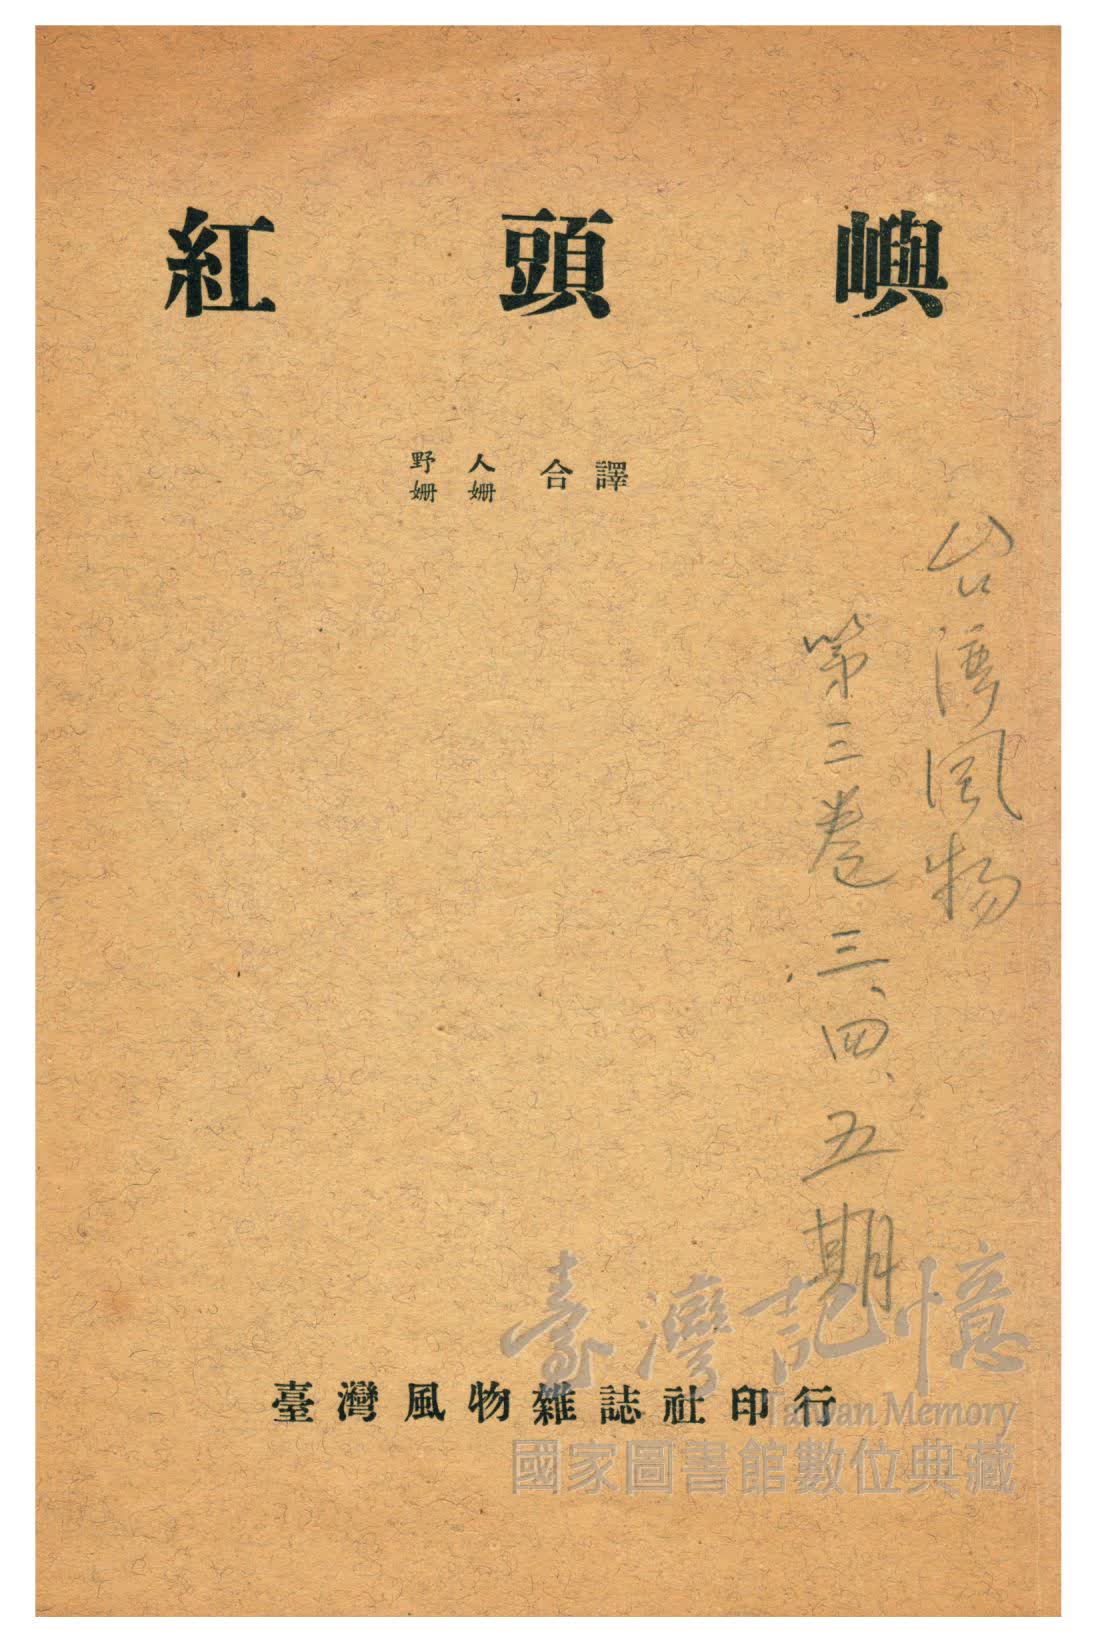 紅頭嶼
野人 合譯
姍姍
台湾風物
第三卷三、四、五期
臺灣風物雜誌社印行
臺灣記憶
Taiwan Memory
國家圖書館數位典藏